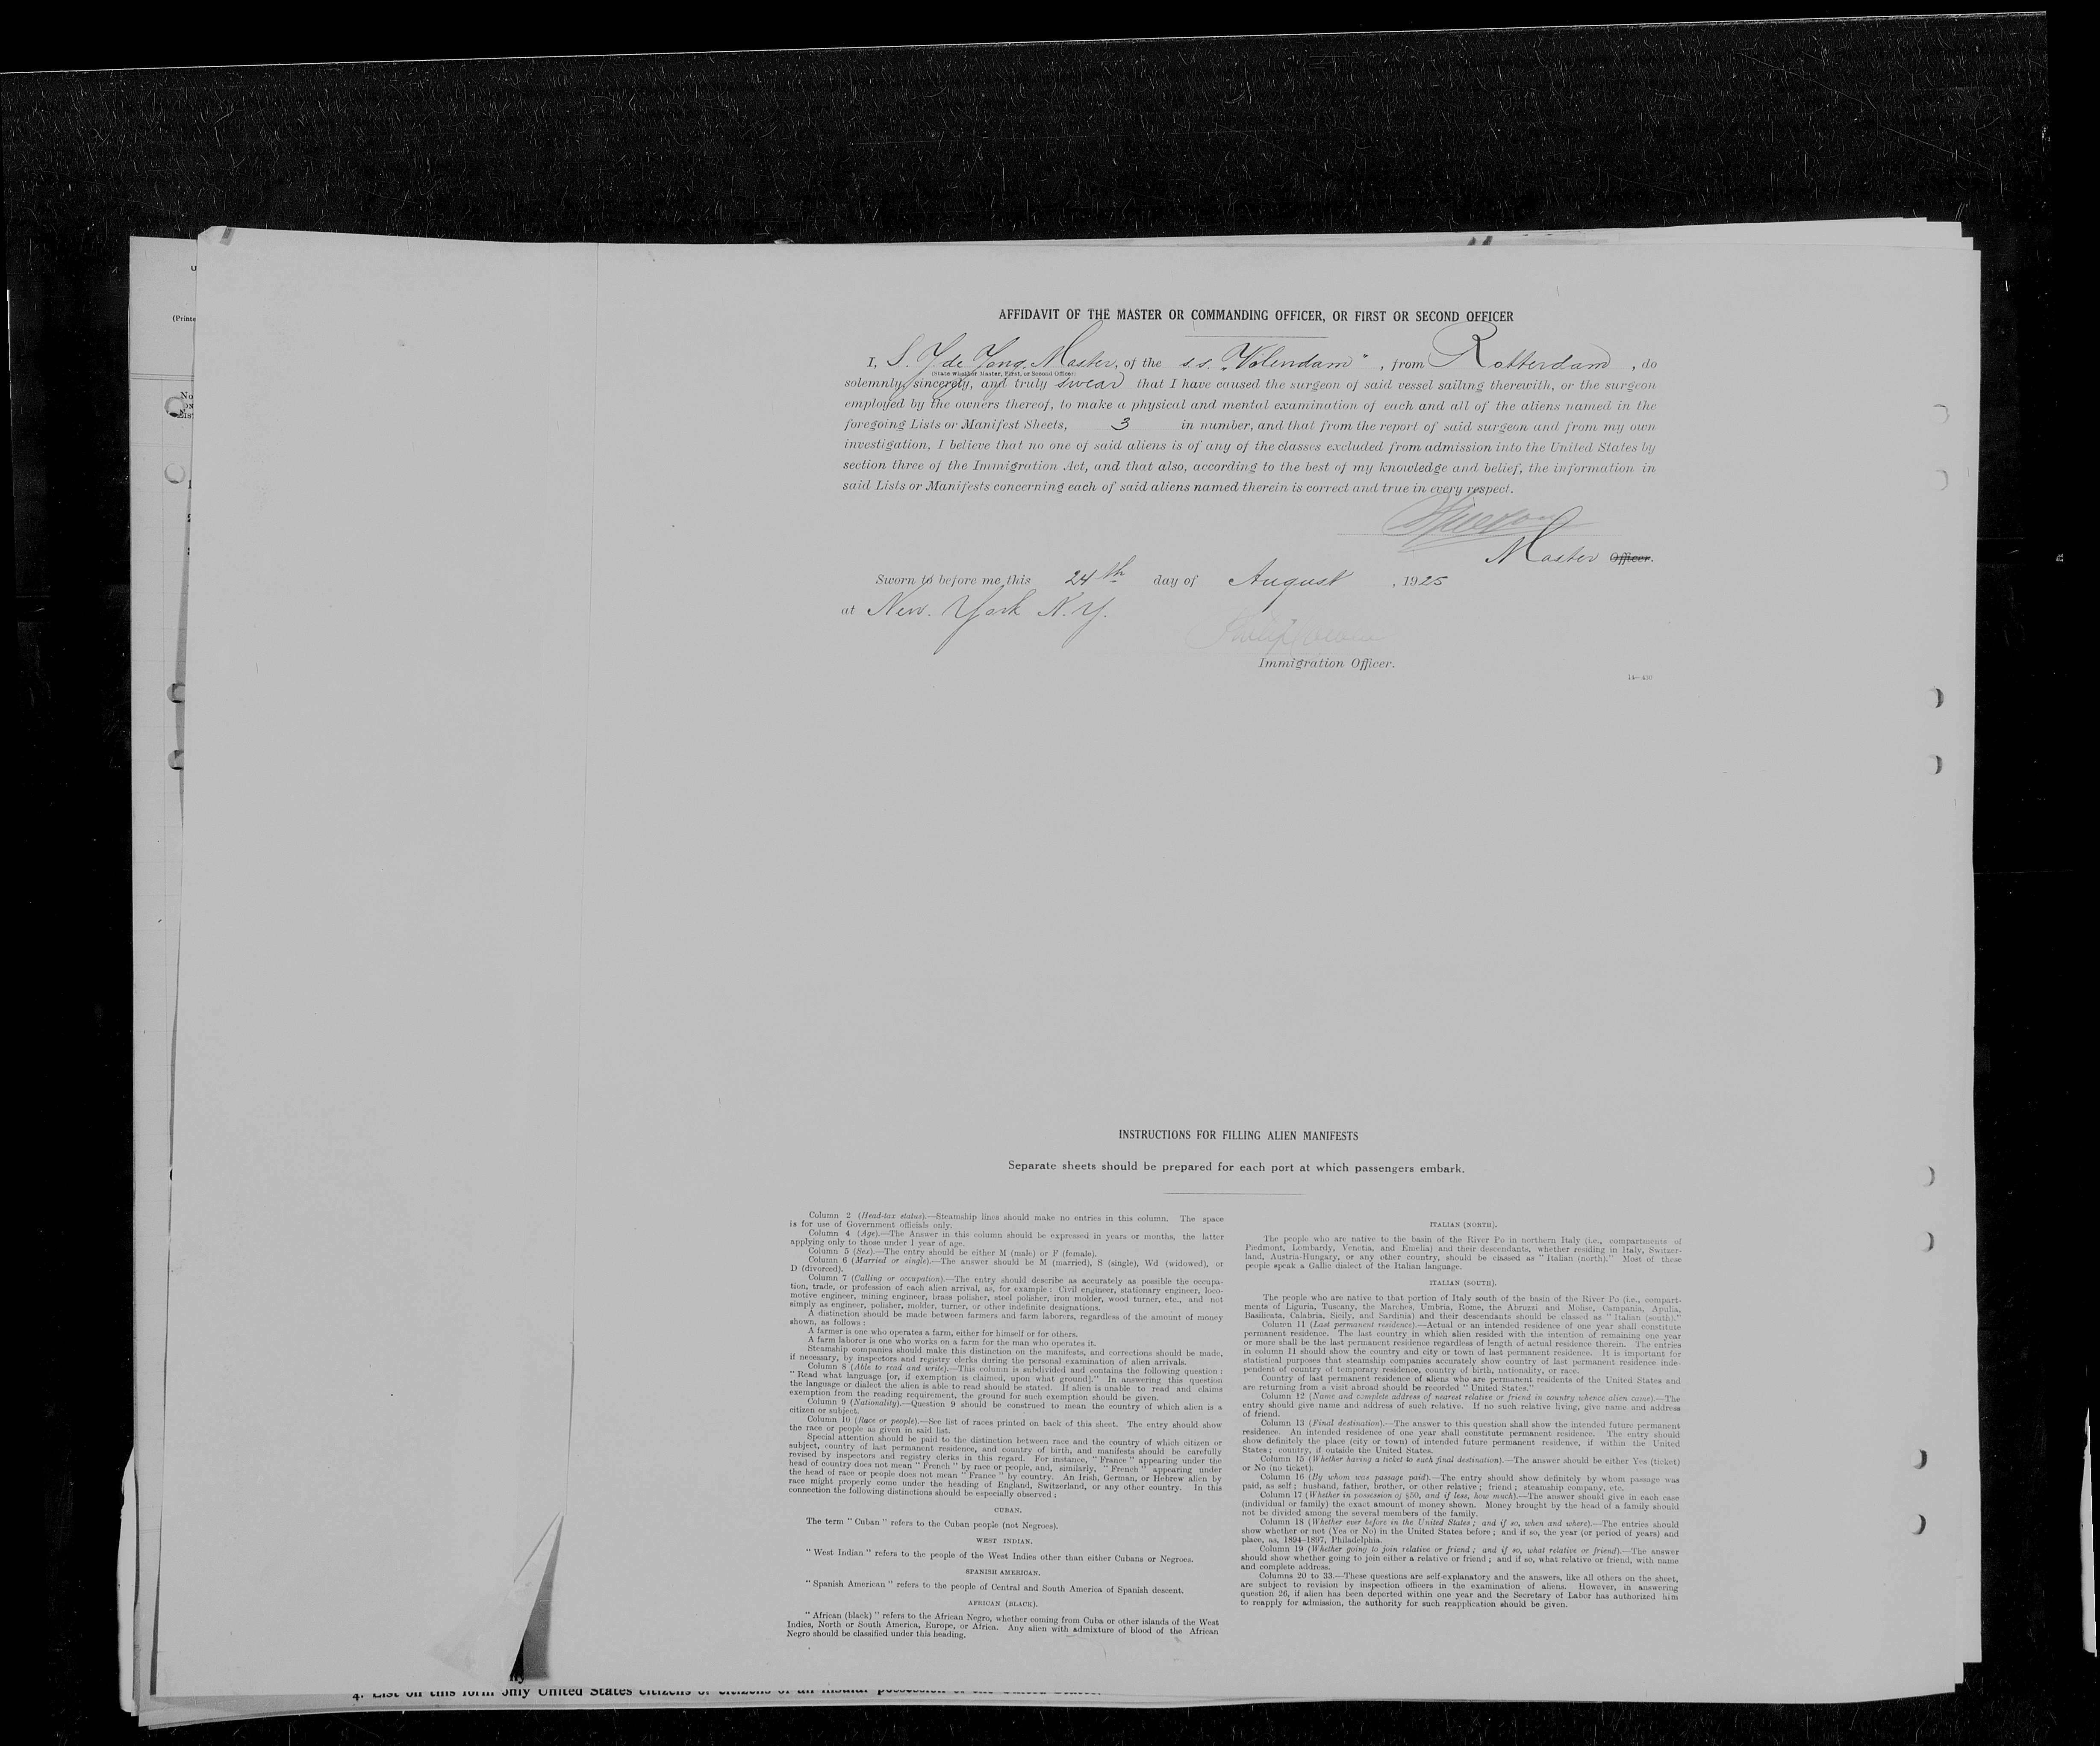 AFFIDAVIT OF THE MASTER OR COMMANDING OFFICER, OR FIRST OR SECOND OFFICER
I, S. Y. de Jong, Master, of the s.s. "Volendam", from Rotterdam, do
(State whether Master, First, or Second Officer)
solemnly, sincerely, and truly swear that I have caused the surgeon of said vessel sailing therewith, or the surgeon
employed by the owners thereof, to make a physical and mental examination of each and all of the aliens named in the
foregoing Lists or Manifest Sheets, 3 in number, and that from the report of said surgeon and from my own
investigation, I believe that no one of said aliens is of any of the classes excluded from admission into the United States by
section three of the Immigration Act, and that also, according to the best of my knowledge and belief, the information in
said Lists or Manifests concerning each of said aliens named therein is correct and true in every respect.
Master Officer.
Sworn to before me this 24th day of August, 1925
at New. York N.Y.
Immigration Officer.
14—430
INSTRUCTIONS FOR FILLING ALIEN MANIFESTS
Separate sheets should be prepared for each port at which passengers embark.
Column 2 (Head-tax status).—Steamship lines should make no entries in this column. The space
is for use of Government officials only.
Column 4 (Age).—The Answer in this column should be expressed in years or months, the latter
applying only to those under 1 year of age.
Column 5 (Sex).—The entry should be either M (male) or F (female).
Column 6 (Married or single).—The answer should be M (married), S (single), Wd (widowed), or
D (divorced).
Column 7 (Calling or occupation).—The entry should describe as accurately as possible the occupa-
tion, trade, or profession of each alien arrival, as, for example: Civil engineer, stationary engineer, loco-
motive engineer, mining engineer, brass polisher, steel polisher, iron molder, wood turner, etc., and not
simply as engineer, polisher, molder, turner, or other indefinite designations.
A distinction should be made between farmers and farm laborers, regardless of the amount of money
shown, as follows:
A farmer is one who operates a farm, either for himself or for others.
A farm laborer is one who works on a farm for the man who operates it.
Steamship companies should make this distinction on the manifests, and corrections should be made,
if necessary, by inspectors and registry clerks during the personal examination of alien arrivals.
Column 8 (Able to read and write).—This column is subdivided and contains the following question:
"Read what language [or, if exemption is claimed, upon what ground]." In answering this question
the language or dialect the alien is able to read should be stated. If alien is unable to read and claims
exemption from the reading requirement, the ground for such exemption should be given.
Column 9 (Nationality).—Question 9 should be construed to mean the country of which alien is a
citizen or subject.
Column 10 (Race or people).—See list of races printed on back of this sheet. The entry should show
the race or people as given in said list.
Special attention should be paid to the distinction between race and the country of which citizen or
subject, country of last permanent residence, and country of birth, and manifests should be carefully
revised by inspectors and registry clerks in this regard. For instance, "France" appearing under the
head of country does not mean "French" by race or people, and, similarly, "French" appearing under
the head of race or people does not mean "France" by country. An Irish, German, or Hebrew alien by
race might properly come under the heading of England, Switzerland, or any other country. In this
connection the following distinctions should be especially observed:
CUBAN.
The term "Cuban" refers to the Cuban people (not Negroes).
WEST INDIAN.
"West Indian" refers to the people of the West Indies other than either Cubans or Negroes.
SPANISH AMERICAN.
"Spanish American" refers to the people of Central and South America of Spanish descent.
AFRICAN (BLACK).
"African (black)" refers to the African Negro, whether coming from Cuba or other islands of the West
Indies, North or South America, Europe, or Africa. Any alien with admixture of blood of the African
Negro should be classified under this heading.
ITALIAN (NORTH).
The people who are native to the basin of the River Po in northern Italy (i.e., compartments of
Piedmont, Lombardy, Venetia, and Emelia) and their descendants, whether residing in Italy, Switzer-
land, Austria-Hungary, or any other country, should be classed as "Italian (north)." Most of these
people speak a Gallic dialect of the Italian language.
ITALIAN (SOUTH).
The people who are native to that portion of Italy south of the basin of the River Po (i.e., compart-
ments of Liguria, Tuscany, the Marches, Umbria, Rome, the Abruzzi and Molise, Campania, Apulia,
Basilicata, Calabria, Sicily, and Sardinia) and their descendants should be classed as "Italian (south)."
Column 11 (Last permanent residence).—Actual or an intended residence of one year shall constitute
permanent residence. The last country in which alien resided with the intention of remaining one year
or more shall be the last permanent residence regardless of length of actual residence therein. The entries
in column 11 should show the country and city or town of last permanent residence. It is important for
statistical purposes that steamship companies accurately show country of last permanent residence inde-
pendent of country of temporary residence, country of birth, nationality, or race.
Country of last permanent residence of aliens who are permanent residents of the United States and
are returning from a visit abroad should be recorded "United States."
Column 12 (Name and complete address of nearest relative or friend in country whence alien came).—The
entry should give name and address of such relative. If no such relative living, give name and address
of friend.
Column 13 (Final destination).—The answer to this question shall show the intended future permanent
residence. An intended residence of one year shall constitute permanent residence. The entry should
show definitely the place (city or town) of intended future permanent residence, if within the United
States; country, if outside the United States.
Column 15 (Whether having a ticket to such final destination).—The answer should be either Yes (ticket)
or No (no ticket).
Column 16 (By whom was passage paid).—The entry should show definitely by whom passage was
paid, as self; husband, father, brother, or other relative; friend; steamship company, etc.
Column 17 (Whether in possession of $50, and if less, how much).—The answer should give in each case
(individual or family) the exact amount of money shown. Money brought by the head of a family should
not be divided among the several members of the family.
Column 18 (Whether ever before in the United States; and if so, when and where).—The entries should
show whether or not (Yes or No) in the United States before; and if so, the year (or period of years) and
place, as, 1894-1897, Philadelphia.
Column 19 (Whether going to join relative or friend; and if so, what relative or friend).—The answer
should show whether going to join either a relative or friend; and if so, what relative or friend, with name
and complete address.
Columns 20 to 33.—These questions are self-explanatory and the answers, like all others on the sheet,
are subject to revision by inspection officers in the examination of aliens. However, in answering
question 26, if alien has been deported within one year and the Secretary of Labor has authorized him
to reapply for admission, the authority for such reapplication should be given.
4. List on this form only United States citizens or citizens of an insular possession of the United States.